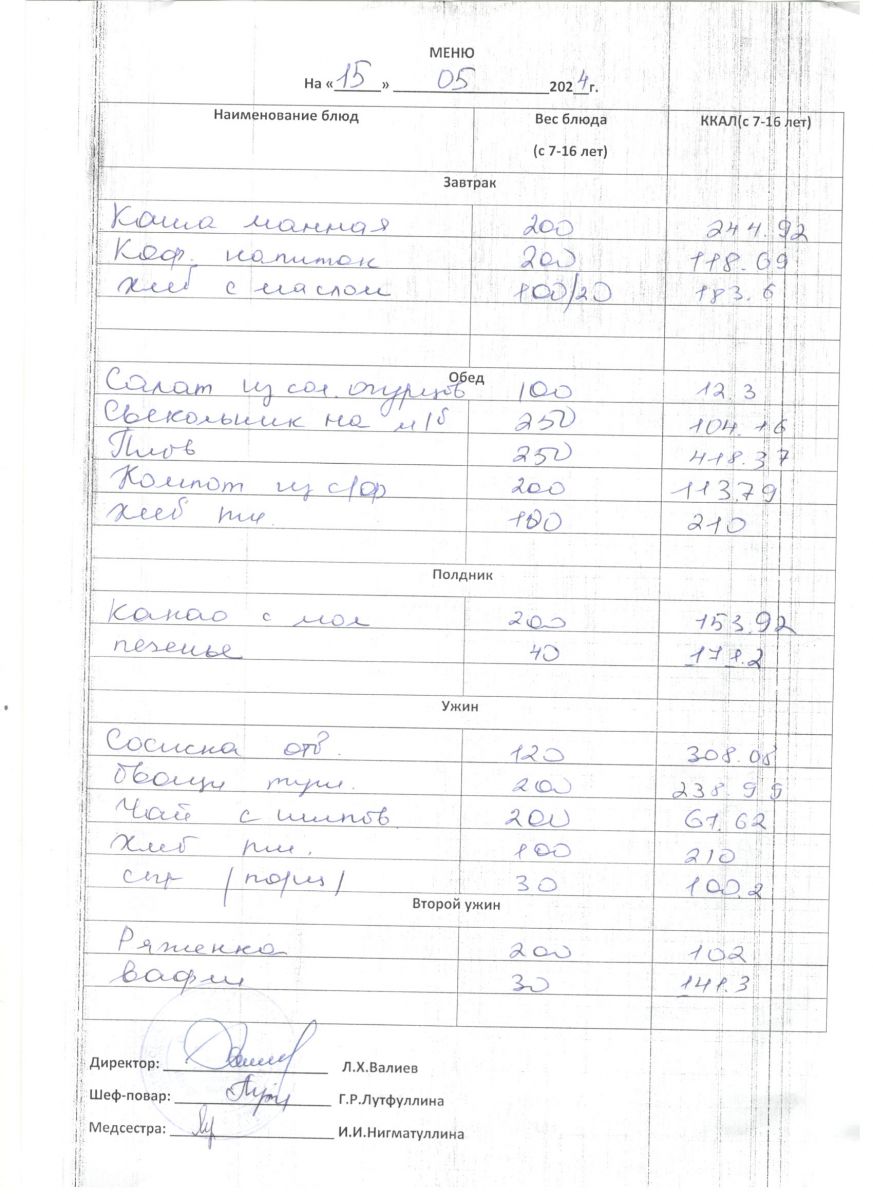 МЕНЮ
На «15» 05 2024г.
Наименование блюд Вес блюда (с 7-16 лет) ККАЛ(с 7-16 лет)
Завтрак
Каша манная 200 244.92
Коф. напиток 200 118.69
Хлеб с маслом 100/20 183.6
Обед
Салат из сол. огурцов 100 12.3
Свекольник на м/б 250 104.16
Плов 250 418.37
Компот из с/фр 200 113.79
Хлеб пш. 100 210
Полдник
Какао с мол 200 153.92
печенье 40 171.2
Ужин
Сосиска отв. 120 308.08
Овощи туш. 200 238.99
Чай с шипов. 200 61.62
Хлеб пш. 100 210
сыр /порц/ 30 100.2
Второй ужин
Ряженка 200 102
вафли 30 141.3
Директор: Л.Х.Валиев
Шеф-повар: Г.Р.Лутфуллина
Медсестра: И.И.Нигматуллина